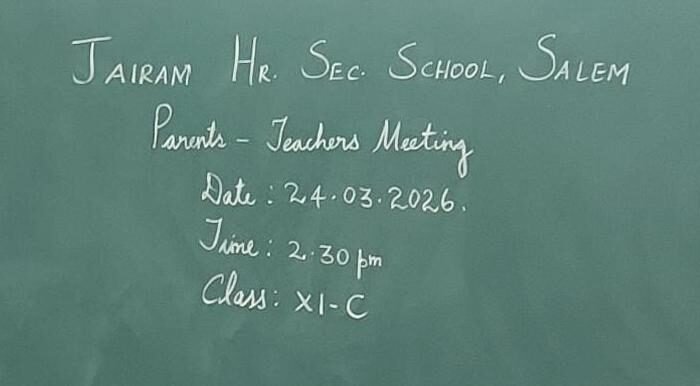 JAIRAM HR. SEC. SCHOOL, SALEM
Parents - Teachers Meeting
Date : 24.03.2026.
Time : 2.30 pm
Class : XI-C